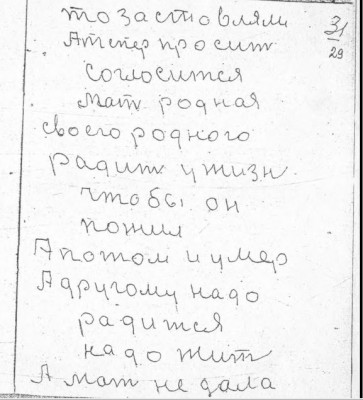 то застовляли
31
29
Атспер просит
соглосится
мат родная
своего родного
радит ужизн
чтобы он
пожил
А потом и умер
А другому надо
радится
надо жит
А мат не дала